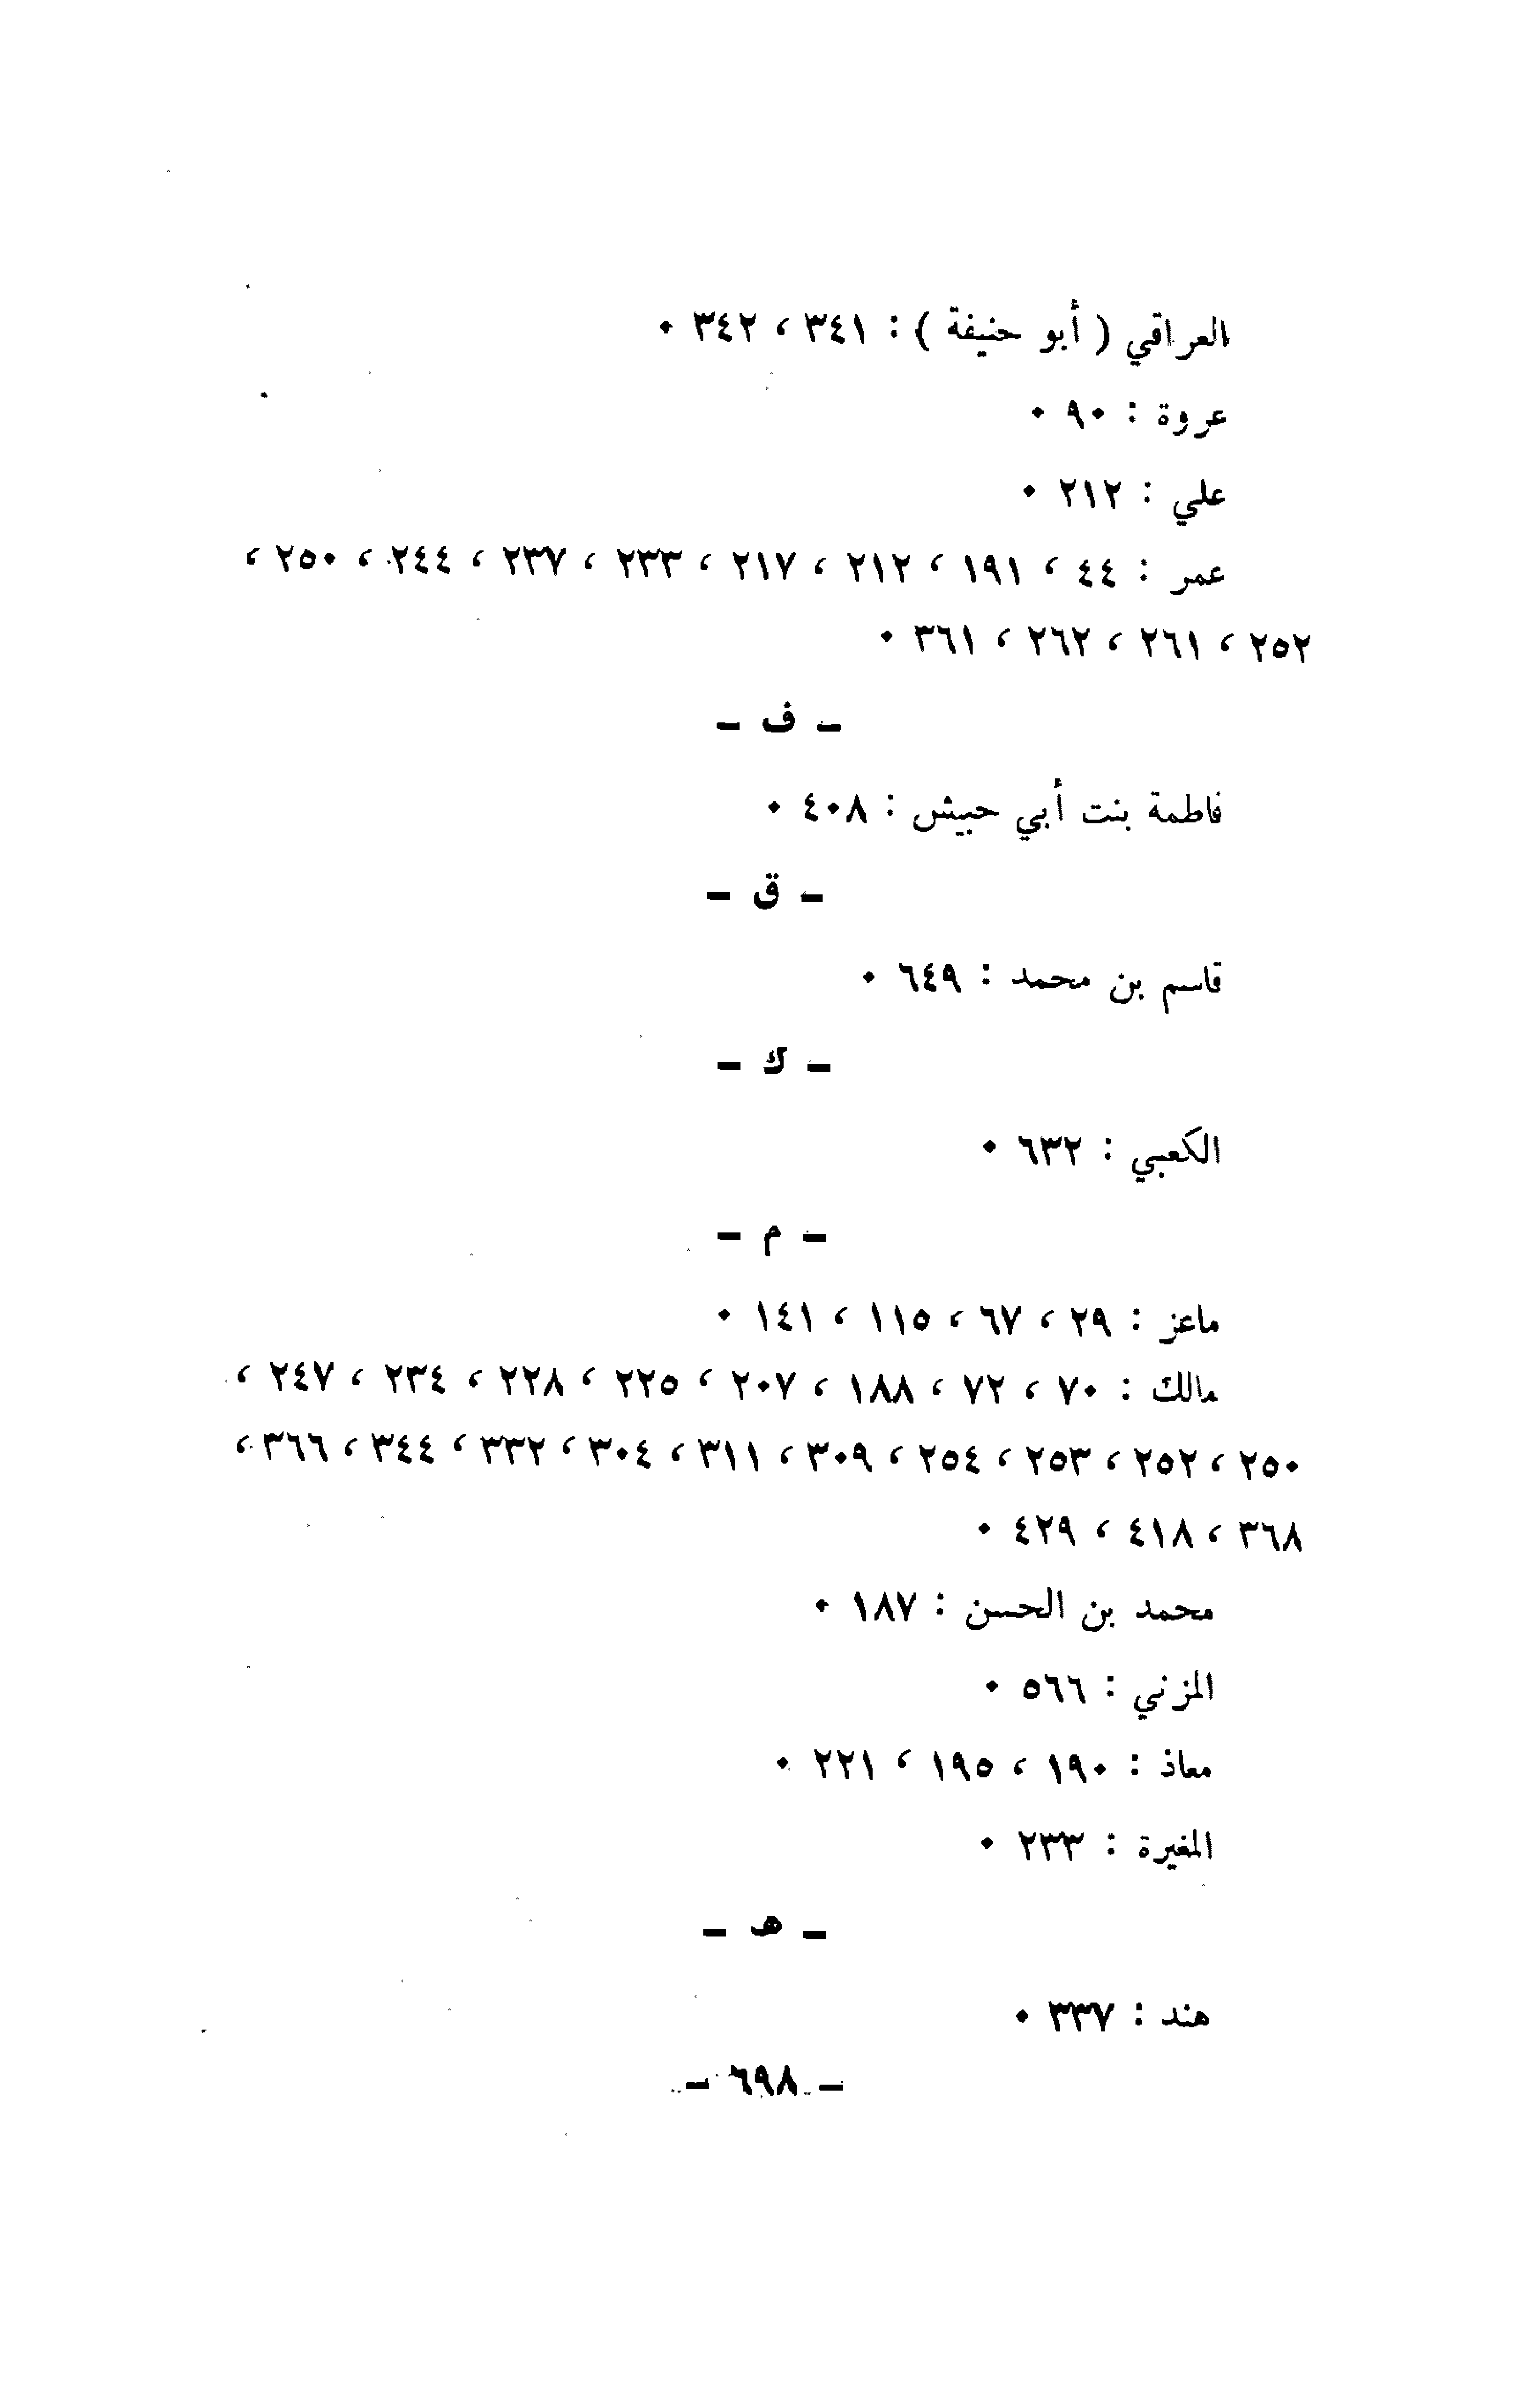 العراقي ( أبو حنيفة ) : ٣٤١ ، ٣٤٢ ٠
عروة : ٩٠ ٠
علي : ٢١٢ ٠
عمر : ٤٤ ، ١٩١ ، ٢١٢ ، ٢١٧ ، ٢٣٣ ، ٢٣٧ ، ٢٤٤ ، ٢٥٠ ،
٢٥٢ ، ٢٦١ ، ٢٦٢ ، ٣٦١ ٠
ـ ف ـ
فاطمة بنت أبي حبيش : ٤٠٨ ٠
ـ ق ـ
قاسم بن محمد : ٦٤٩ ٠
ـ ك ـ
الكعبي : ٦٣٢ ٠
ـ م ـ
ماعز : ٢٩ ، ٦٧ ، ١١٥ ، ١٤١ ٠
مالك : ٧٠ ، ٧٢ ، ١٨٨ ، ٢٠٧ ، ٢٢٥ ، ٢٢٨ ، ٢٣٤ ، ٢٤٧ ،
٢٥٠ ، ٢٥٢ ، ٢٥٣ ، ٢٥٤ ، ٣٠٩ ، ٣١١ ، ٣٠٤ ، ٣٣٢ ، ٣٤٤ ، ٣٦٦ ،
٣٦٨ ، ٤١٨ ، ٤٢٩ ٠
محمد بن الحسن : ١٨٧ ٠
المزني : ٥٦٦ ٠
معاذ : ١٩٠ ، ١٩٥ ، ٢٢١ ٠
المغيرة : ٢٣٣ ٠
ـ هـ ـ
هند : ٣٣٧ ٠
ـ ٦٩٨ ـ